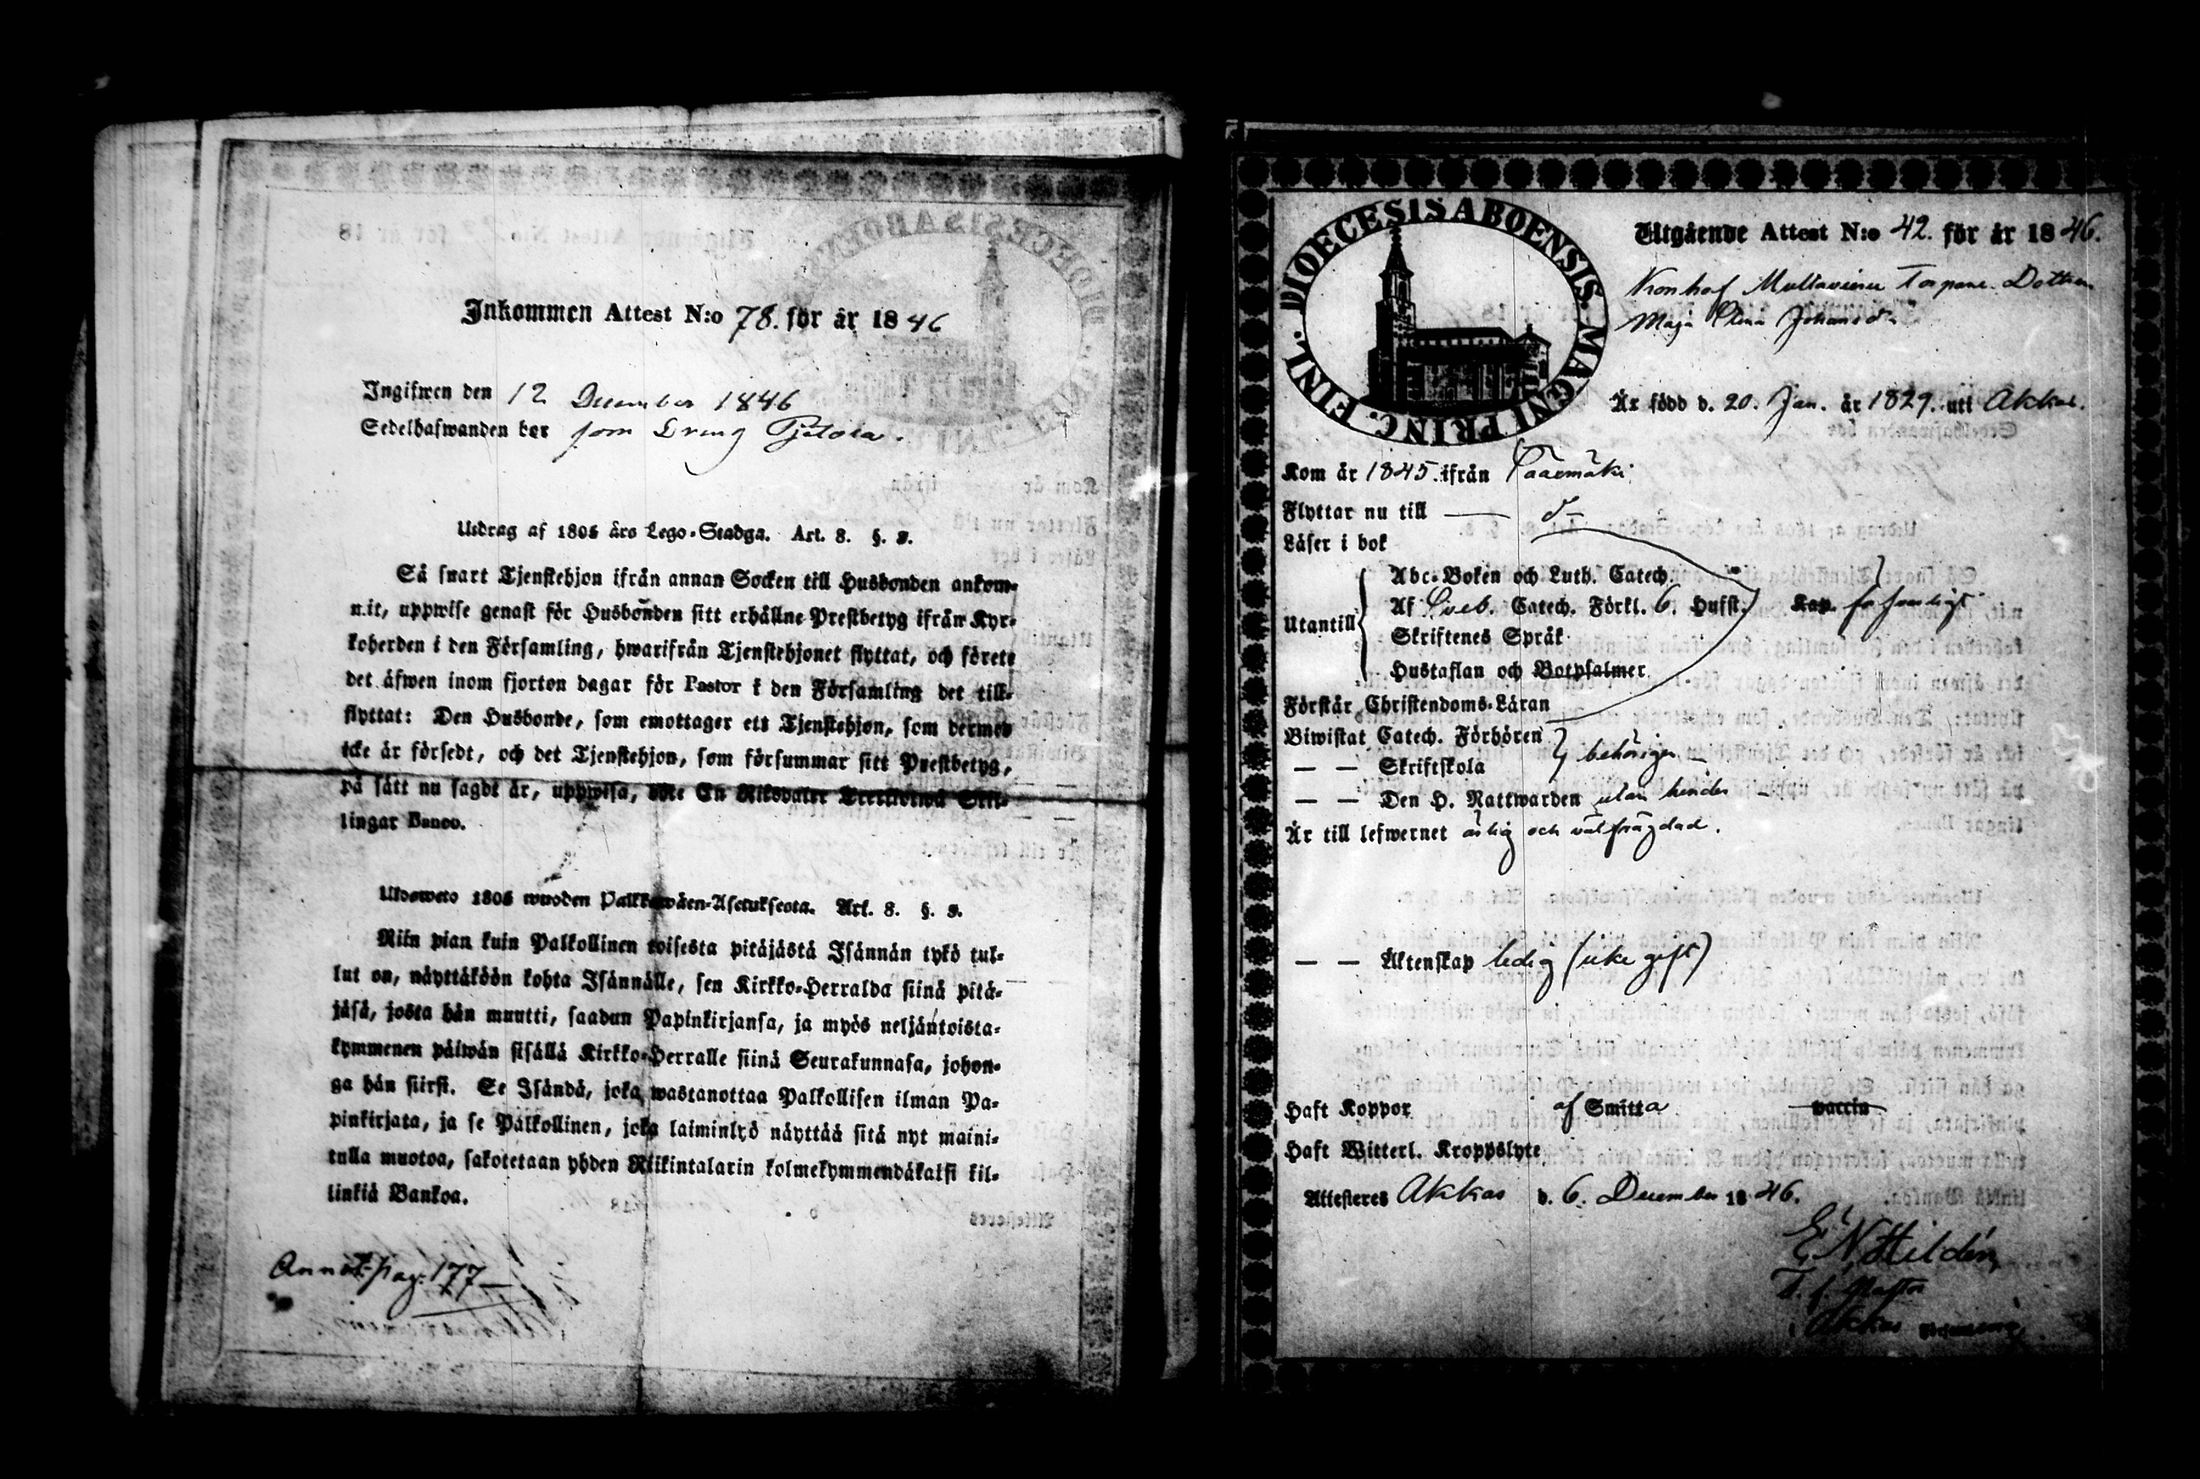 Inkommen Attest N:o 78. för år 1846
Ingifwen den 12 December 1846
Sedelhafwanden bor som Dräng
Utdrag af 1805 års Lego-Stadga. Art. 8. §. 9.
Så snart Tjenstehjon ifrån annan Socken till Husbonden ankom-
mit, uppwise genast för Husbonden sitt erhållne Prestbetyg ifrån Kyr-
koherden i den Församling, hwarifrån Tjenstehjonet flyttat, och förete
det äfwen inom fjorton dagar för Pastor i den Församling det till-
flyttat: Den Husbonde, som emottager ett Tjenstehjon, som dermed
icke är försedt, och det Tjenstehjon, som försummar sitt Prestbetyg,
på sätt nu sagdt är, uppwisa, böte En Riksdaler Trettiotwå Skil-
lingar Banco.
Ulosweto 1805 wuoden Palkkawäen-Asetuksesta. Art. 8. §. 9.
Niin pian kuin Palkollinen toisesta pitäjästä Isännän tykö tul-
lut on, näyttäköön kohta Isännälle, sen Kirkko-Herralda siinä pitä-
jäsä, josta hän muutti, saadun Papinkirjansa, ja myös neljäntoista-
kymmenen päiwän sisällä Kirkko-Herralle siinä Seurakunnasa, johon-
ga hän siirsi. Se Isändä, joka wastanottaa Palkollisen ilman Pa-
pinkirjata, ja se Palkollinen, joka laiminlyö näyttää sitä nyt maini-
tulla muotoa, sakotetaan yhden Riikintalarin kolmekymmendäkaksi kil-
linkiä Bankoa.
Annot. pag: 177
DIOECESIS ABOENSIS. MAGNI PRINC. FINL.
Utgående Attest N:o 42. för år 1846.
Torpare Dottren
Maja Johansdr
Är född d. 20. Jan. år 1829. uti Akkas.
Kom år 1845. ifrån
Flyttar nu till — d:o
Läser i bok
Utantill
Abc-Boken och Luth. Catech.
Af Sveb. Catech. Förkl. 6. Hufst. Kap.
Skriftenes Språk
Hustaflan och Botpsalmer
Förstår Christendoms-Läran
Biwistat Catech. Förhören
— — Skriftskola behörigen
— — Den H. Nattwarden utan hinder
Är till lefwernet ärlig och välfrägdad.
— — Äktenskap ledig (icke gift)
Haft Koppor af Smitta vaccin
Haft Witterl. Kroppslyte
Attesteres Akkas d. 6. December 1846.
E. N. Hildén